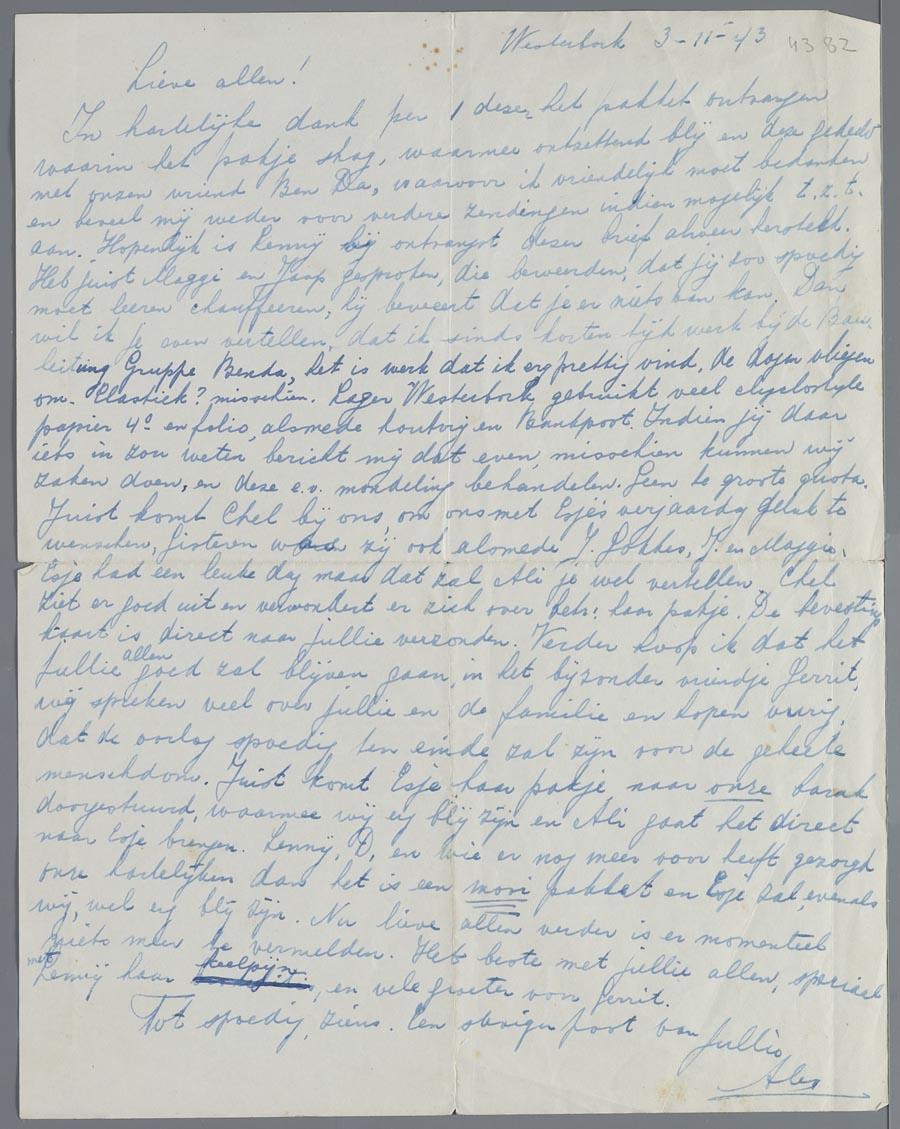 Westerbork 3-11-43 4382
Lieve allen!
In hartelijke dank per 1 dezer het pakket ontvangen
waarin het pakje shag, waarmee ontzettend blij en deze gedeeld
met onzen vriend Ben Da, waarvoor ik vriendelijk moet bedanken
en beveel mij weder voor verdere zendingen indien mogelijk t.z.t.
aan. Hopenlijk is Lenny bij ontvangst dezer brief alweer hersteld.
Heb juist Maggi en Jaap gesproken, die beweerden, dat jij zoo spoedig
moet leeren chauffeeren, hij beweert dat je er niets van kan. Dan
wil ik je even vertellen, dat ik sinds korten tijd werk bij de Bau-
leitung Gruppe Benda, het is werk dat ik erg prettig vind, de dagen vliegen
om. Elastiek? misschien. Lager Westerbork gebruikt veel
papier 4º en folio, alsmede houtvrij en Bankpost. Indien jij daar
iets in zou weten bericht mij dat even, misschien kunnen wij
zaken doen, en deze e.v. mondeling behandelen. Geen te groote quota.
Juist komt Chel bij ons, om ons met Esje's verjaardag geluk te
wenschen, gisteren was zij ook alsmede J. Gokkes, J. en Maggie.
Esje had een leuke dag maar dat zal Ali je wel vertellen. Chel
ziet er goed uit en verwondert er zich over betr: haar pakje. De bevesting
kaart is direct naar jullie verzonden. Verder hoop ik dat het
jullie allen goed zal blijven gaan, in het bijzonder vriendje Gerrit,
wij spreken veel over jullie en de familie en hopen vurig,
dat de oorlog spoedig ten einde zal zijn voor de geheele
menschdom. Juist komt Esje haar pakje naar onze barak
doorgestuurd, waarmee wij erg blij zijn en Ali gaat het direct
naar Esje brengen. Lenny, D, en wie er nog meer voor heeft gezorgd
onze hartelijken dan het is een mooi pakket en Esje zal, evenals
wij, wel erg blij zijn. Nu lieve allen verder is er momenteel
niets meer te vermelden. Het beste met jullie allen, speciael
met Lenny haar keelpijn, en vele groeten voor Gerrit.
Tot spoedig ziens. Een stevigen poot van Jullie
Alex